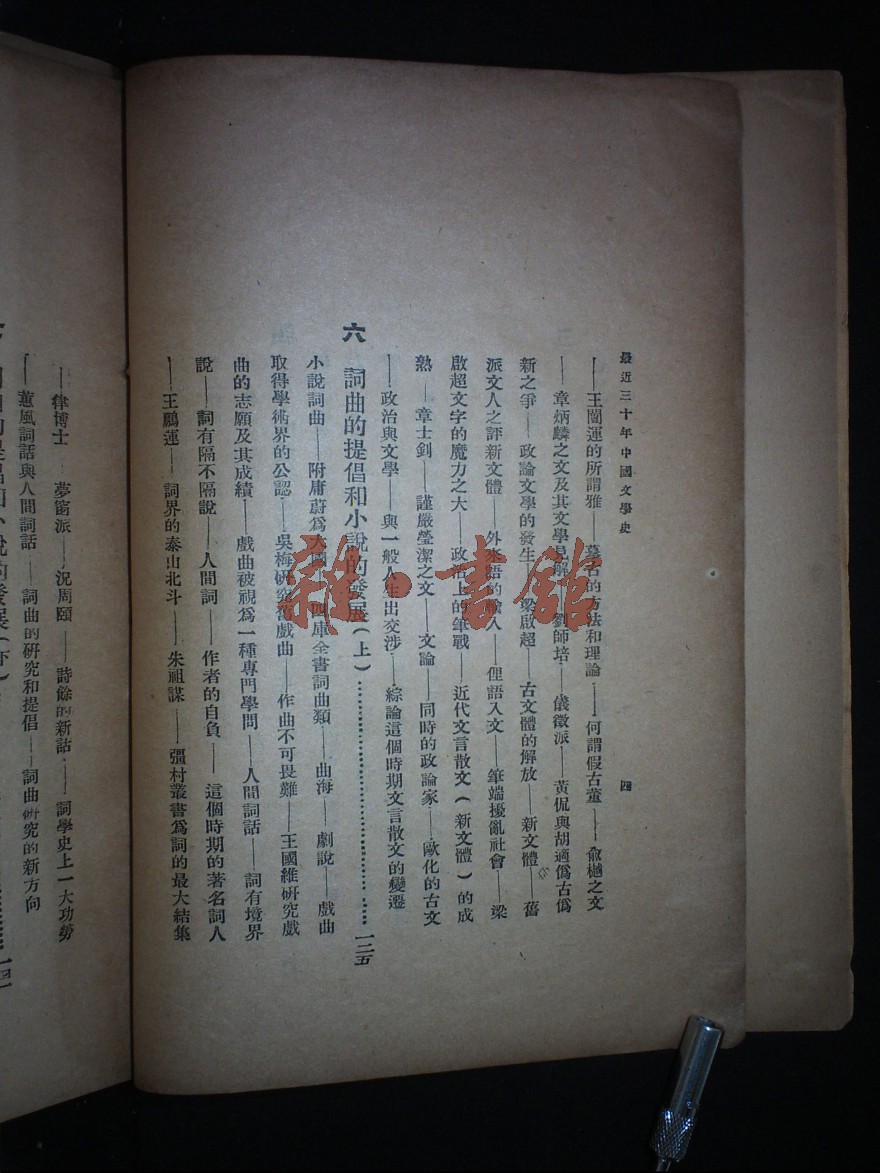 最近三十年中國文學史
四
——王闓運的所謂雅——摹古的方法和理論——何謂假古董——俞樾之文
——章炳麟之文及其文學見解——劉師培——儀徵派——黃侃與胡適僞古僞
新之爭——政論文學的發生——梁啟超——古文體的解放——新文體——舊
派文人之評新文體——外來語的輸入——俚語入文——筆端擾亂社會——梁
啟超文字的魔力之大——政治上的筆戰——近代文言散文(新文體)的成
熟——章士釗——謹嚴瑩潔之文——文論——同時的政論家——歐化的古文
——政治與文學——與一般人生出交涉——綜論這個時期文言散文的變遷
六 詞曲的提倡和小說的發展(上)……一二五
小說詞曲——附庸蔚爲大國——四庫全書詞曲類——曲海——劇說——戲曲
取得學術界的公認——吳梅研究舊戲曲——作曲不可畏難——王國維研究戲
曲的志願及其成績——戲曲被視爲一種專門學問——人間詞話——詞有境界
說——詞有隔不隔說——人間詞——作者的自負——這個時期的著名詞人
——王鵬運——詞界的泰山北斗——朱祖謀——彊村叢書爲詞的最大結集
——律博士——夢窗派——況周頤——詩餘的新詁——詞學史上一大功勞
——蕙風詞話與人間詞話——詞曲的研究和提倡——詞曲研究的新方向
詞曲的提倡和小說的發展(下)
雜·書館